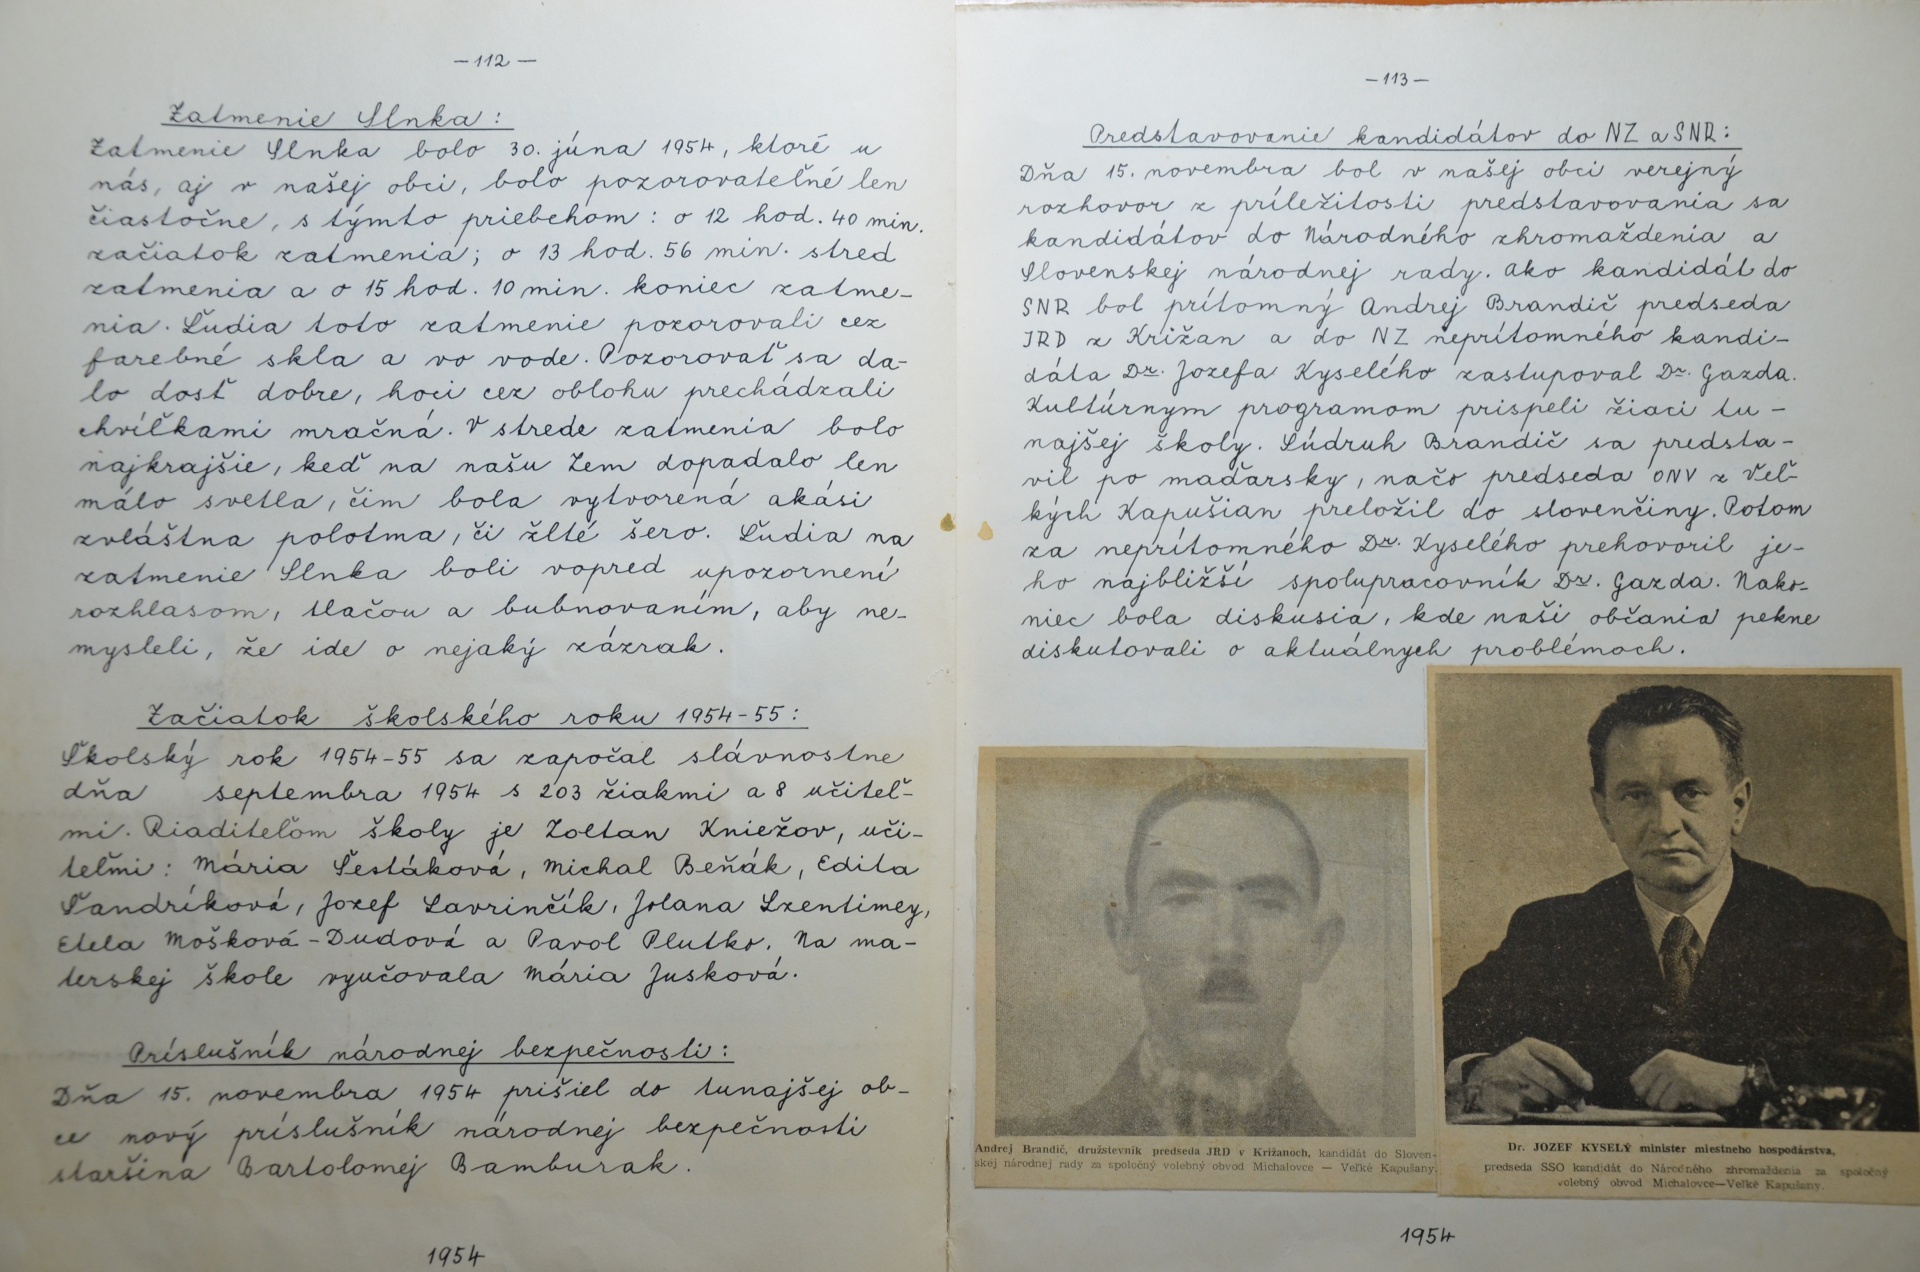 — 112 —
Zatmenie Slnka :
Zatmenie Slnka bolo 30. júna 1954, ktoré u
nás, aj v našej obci, bolo pozorovateľné len
čiastočne, s týmto priebehom : o 12 hod. 40 min.
začiatok zatmenia; o 13 hod. 56 min. stred
zatmenia a o 15 hod. 10 min. koniec zatme-
nia. Ľudia toto zatmenie pozorovali cez
farebné skla a vo vode. Pozorovať sa da-
lo dosť dobre, hoci cez oblohu prechádzali
chvíľkami mračná. V strede zatmenia bolo
najkrajšie, keď na našu Zem dopadalo len
málo svetla, čim bola vytvorená akási
zvláštna polotma, či žlté šero. Ľudia na
zatmenie Slnka boli vopred upozornení
rozhlasom, tlačou a bubnovaním, aby ne-
mysleli, že ide o nejaký zázrak.
Začiatok školského roku 1954-55 :
Školský rok 1954-55 sa započal slávnostne
dňa septembra 1954 s 203 žiakmi a 8 učiteľ-
mi. Riaditeľom školy je Zoltan Kniežov, uči-
teľmi : Mária Šestáková, Michal Beňák, Edita
Šandríková, Jozef Lavrinčík, Jolana Lzentimey,
Etela Mošková-Dudová a Pavol Plutko. Na ma-
terskej škole vyučovala Mária Jusková.
Príslušník národnej bezpečnosti :
Dňa 15. novembra 1954 prišiel do tunajšej ob-
ce nový príslušník národnej bezpečnosti
staršina Bartolomej Bamburak.
1954
— 113 —
Predstavovanie kandidátov do NZ a SNR :
Dňa 15. novembra bol v našej obci verejný
rozhovor z príležitosti predstavovania sa
kandidátov do Národného zhromaždenia a
Slovenskej národnej rady. Ako kandidát do
SNR bol prítomný Andrej Brandič predseda
JRD z Križan a do NZ neprítomného kandi-
dáta Dr. Jozefa Kyselého zastupoval Dr. Gazda.
Kultúrnym programom prispeli žiaci tu-
najšej školy. Súdruh Brandič sa predsta-
vil po maďarsky, načo predseda ONV z Veľ-
kých Kapušian preložil do slovenčiny. Potom
za neprítomného Dr. Kyselého prehovoril je-
ho najbližší spolupracovník Dr. Gazda. Nako-
niec bola diskusia, kde naši občania pekne
diskutovali o aktuálnych problémoch.
Andrej Brandič, družstevník predseda JRD v Križanoch, kandidát do Sloven-
skej národnej rady za spoločný volebný obvod Michalovce — Veľké Kapušany.
Dr. JOZEF KYSELÝ minister miestneho hospodárstva,
predseda SSO kandidát do Národného zhromaždenia za spoločný
volebný obvod Michalovce—Veľké Kapušany.
1954